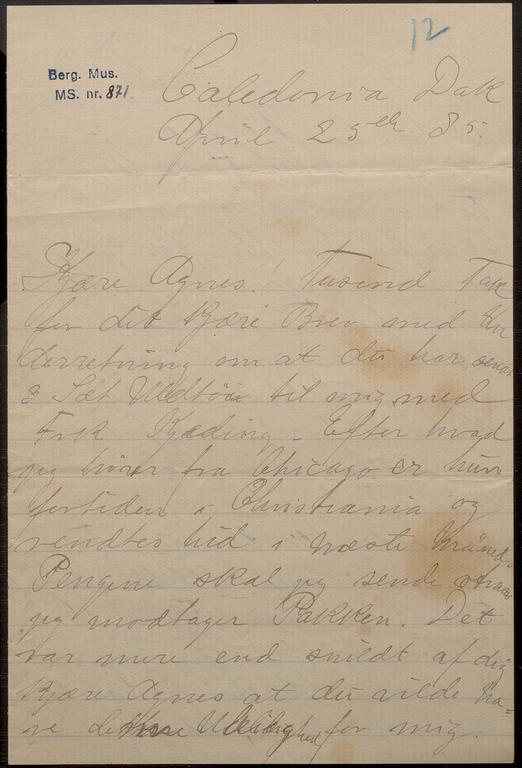 12
Berg. Mus.
MS. nr. 871.
Caledonia Dak
April 25th 85.
Kjære Agnes! Tusind Tak
for det kjære Brev med Un
derretning om at du har sendt
3 Sæt Uldtöi til mig med
Frk Kjæding. Efter hvad
jeg hörer fra Chicago er hun
fortiden i Christiania og
ventes hid i næste Måned.
Pengene skal jeg sende straks
jeg modtager Pakken. Det
var mere end snildt af dig
Kjære Agnes at du vilde ha-
ve denne Uleilighed for mig.